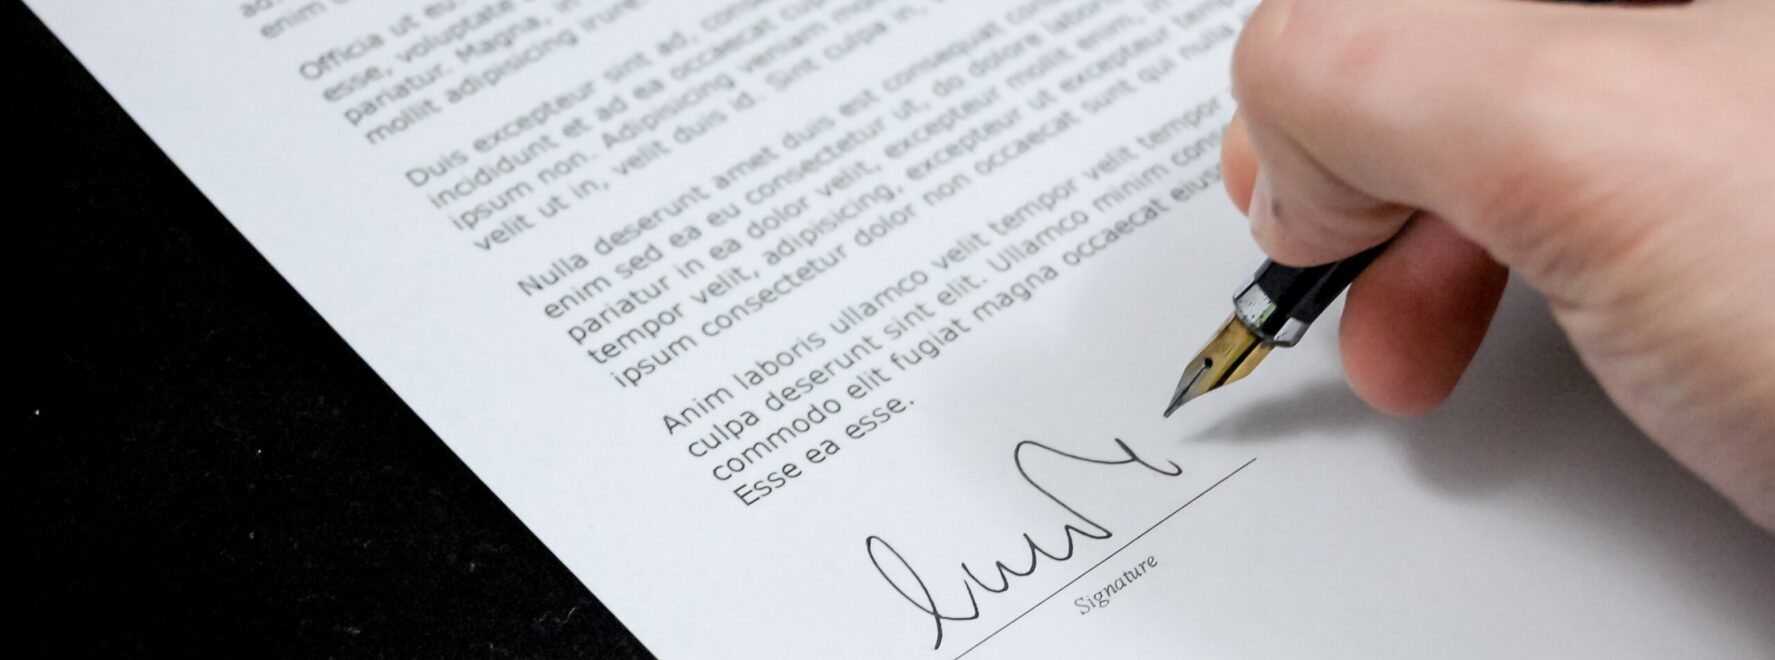 enim
Officia ut eu
esse, voluptate
pariatur. Magna, in
mollit adipisicing irure
Duis excepteur sint ad, cons
incididunt et ad ea occaecat cup
ipsum non. Adipisicing veniam mol
velit ut in, velit duis id. Sint culpa in,
Nulla deserunt amet duis est consequat con
enim sed ea eu consectetur ut, do dolore labori
pariatur in ea dolor velit, excepteur mollit enim, in
tempor velit, adipisicing, excepteur ut excepteur temp
ipsum consectetur dolor non occaecat sunt qui nulla
Anim laboris ullamco velit tempor velit tempor
culpa deserunt sint elit. Ullamco minim cons
commodo elit fugiat magna occaecat eius
Esse ea esse.
Signature